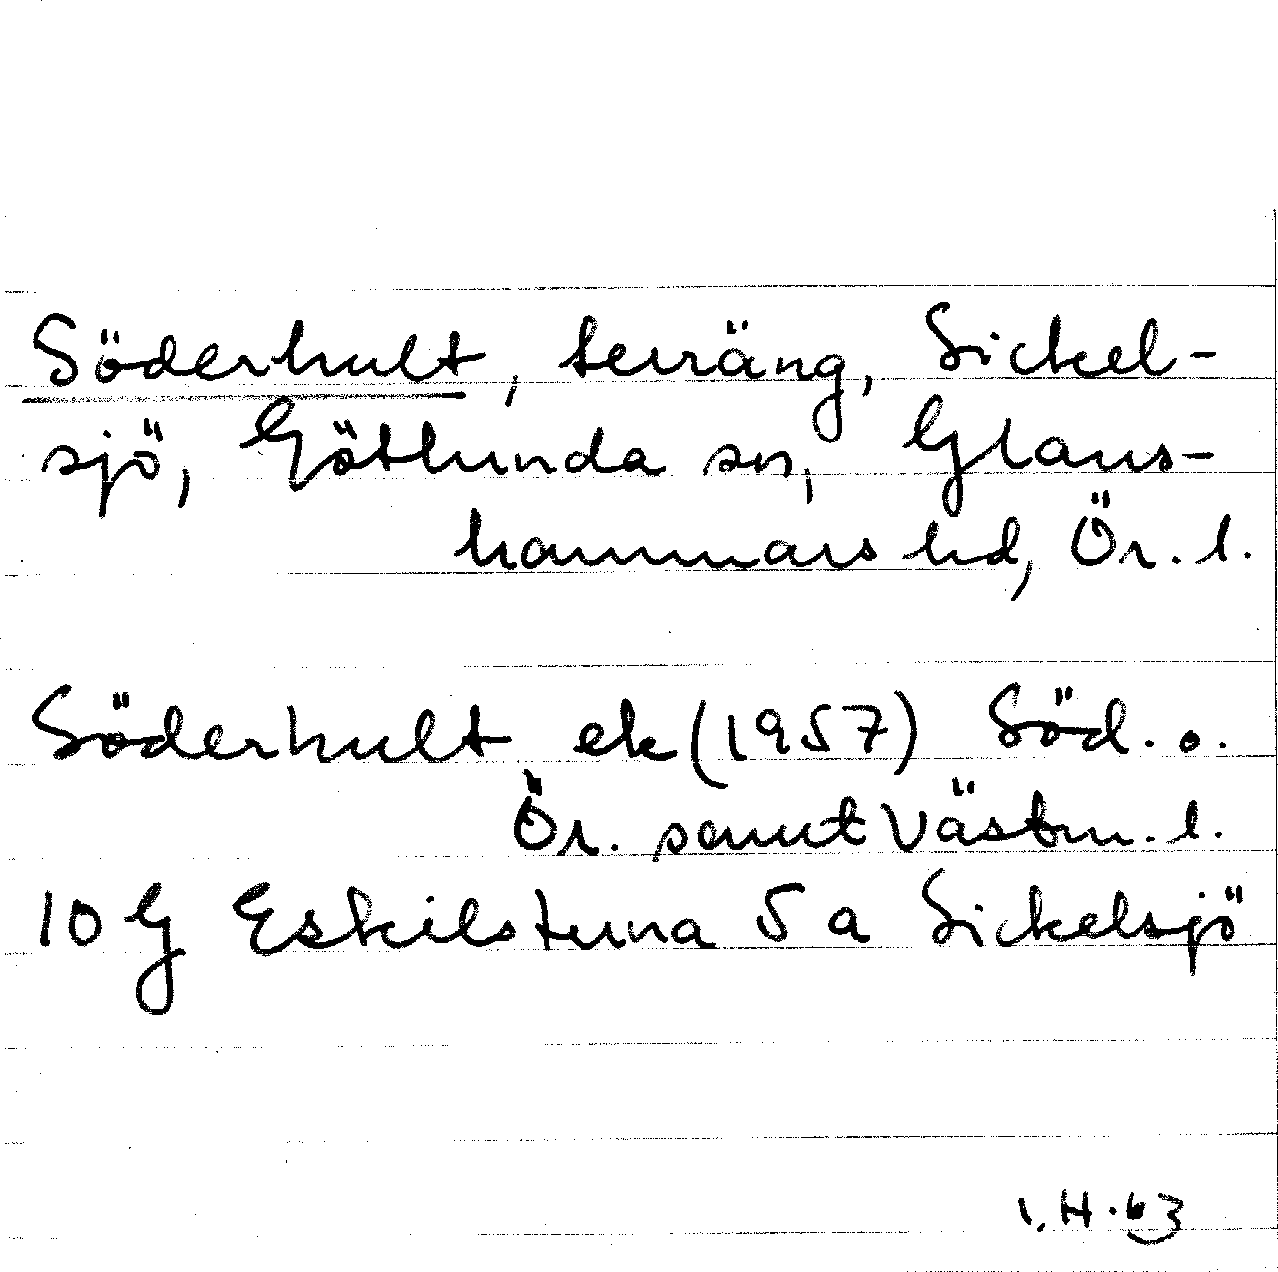 Söderhult, terräng, Sickel-
sjö, Götlunda sn, Glans-
hammars hd, Ör. l.
Söderhult ek (1957) Söd. o.
Ör. samt Västm. l.
10 G Eskilstuna 5 a Sickelsjö
I. H. 63